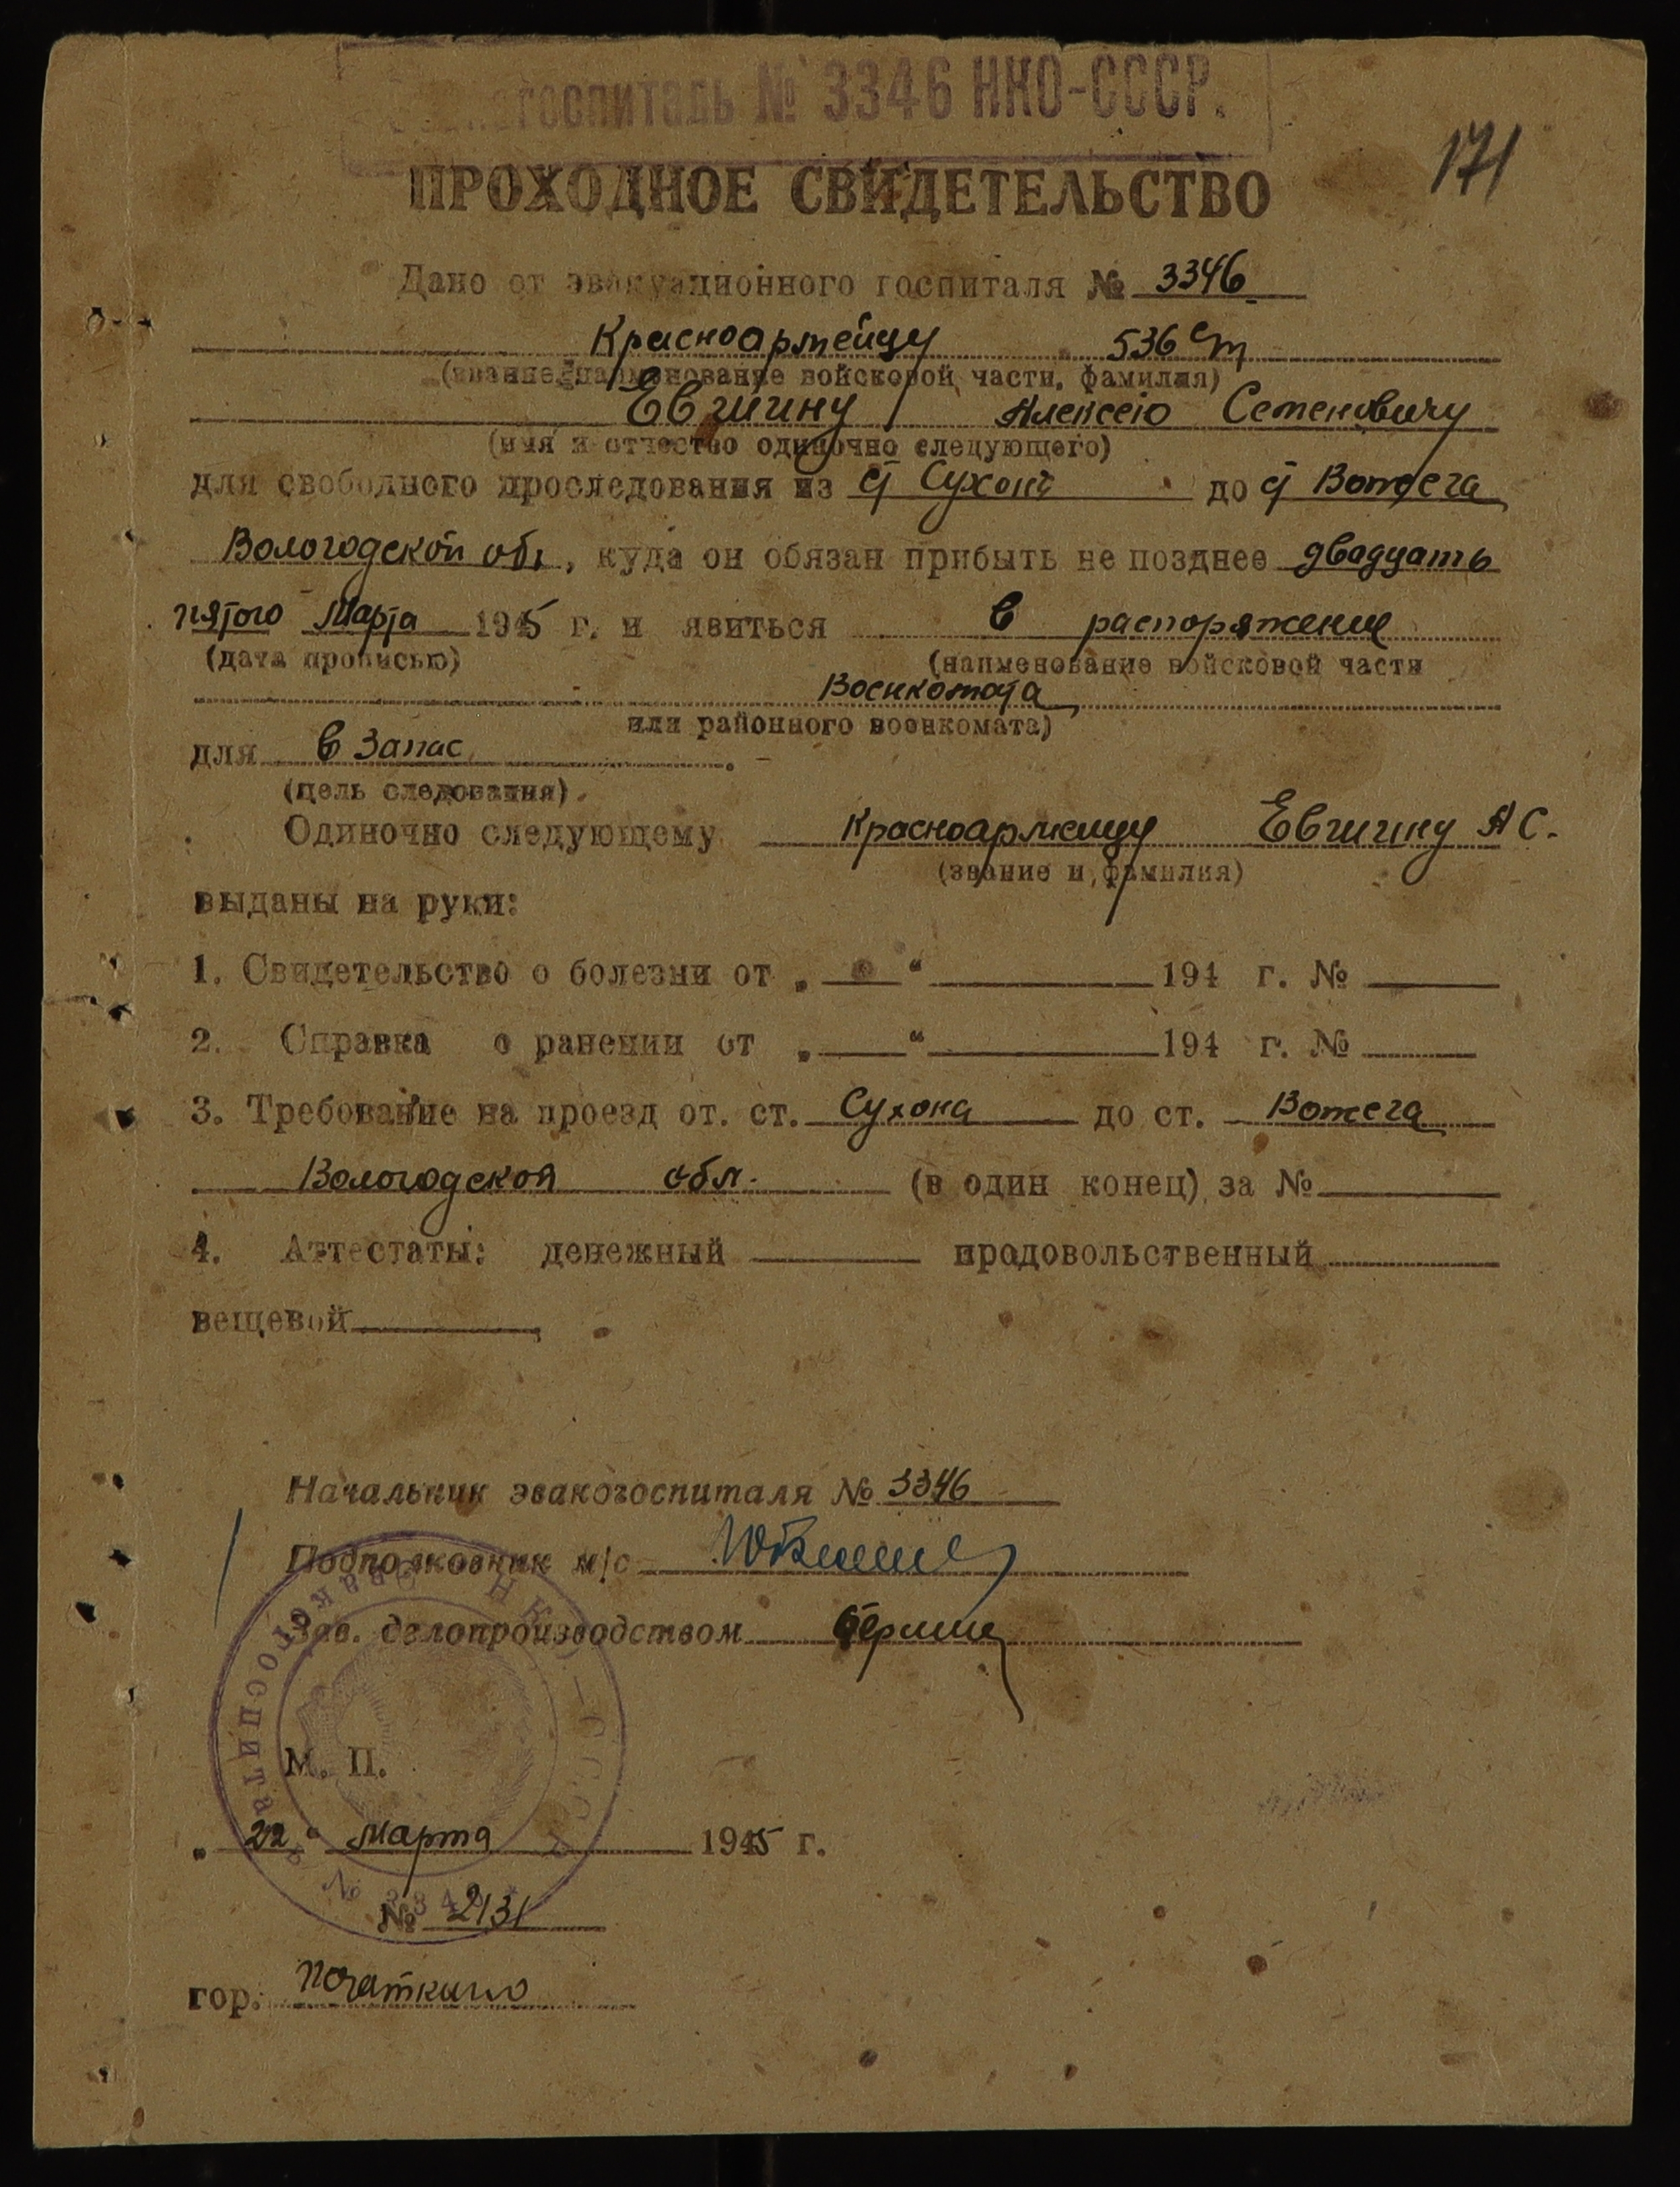 госпиталь № 3346 НКО-СССР.
171
ПРОХОДНОЕ СВИДЕТЕЛЬСТВО
Дано от эвакуационного госпиталя № 3346
Красноармейцу 536 сп
(звание, наименование войсковой части, фамилия)
Евшину Алексею Семеновичу
(имя и отчество одиночно следующего)
для свободного проследования из ст Сухона до ст Вожега
Вологодской обл, куда он обязан прибыть не позднее двадцать
пятого Марта 1945 г. и явиться в распоряжение
(дата прописью) (наименование войсковой части
Военкомата
или районного военкомата)
для в Запас.
(цель следования).
Одиночно следующему Красноармейцу Евшину А С.
(звание и фамилия)
выданы на руки:
1. Свидетельство о болезни от „ “ 194 г. №
2. Справка о ранении от „ “ 194 г. №
3. Требование на проезд от. ст. Сухона до ст. Вожега
Вологодской обл. (в один конец) за №
4. Аттестаты: денежный продовольственный
вещевой
Начальник эвакогоспиталя № 3346
Подполковник м/с
Зав. делопроизводством
Эвакогоспиталь № 3346 НКО-СССР
М. П.
„ 22 “ Марта 1945 г.
№ 2131
гор.